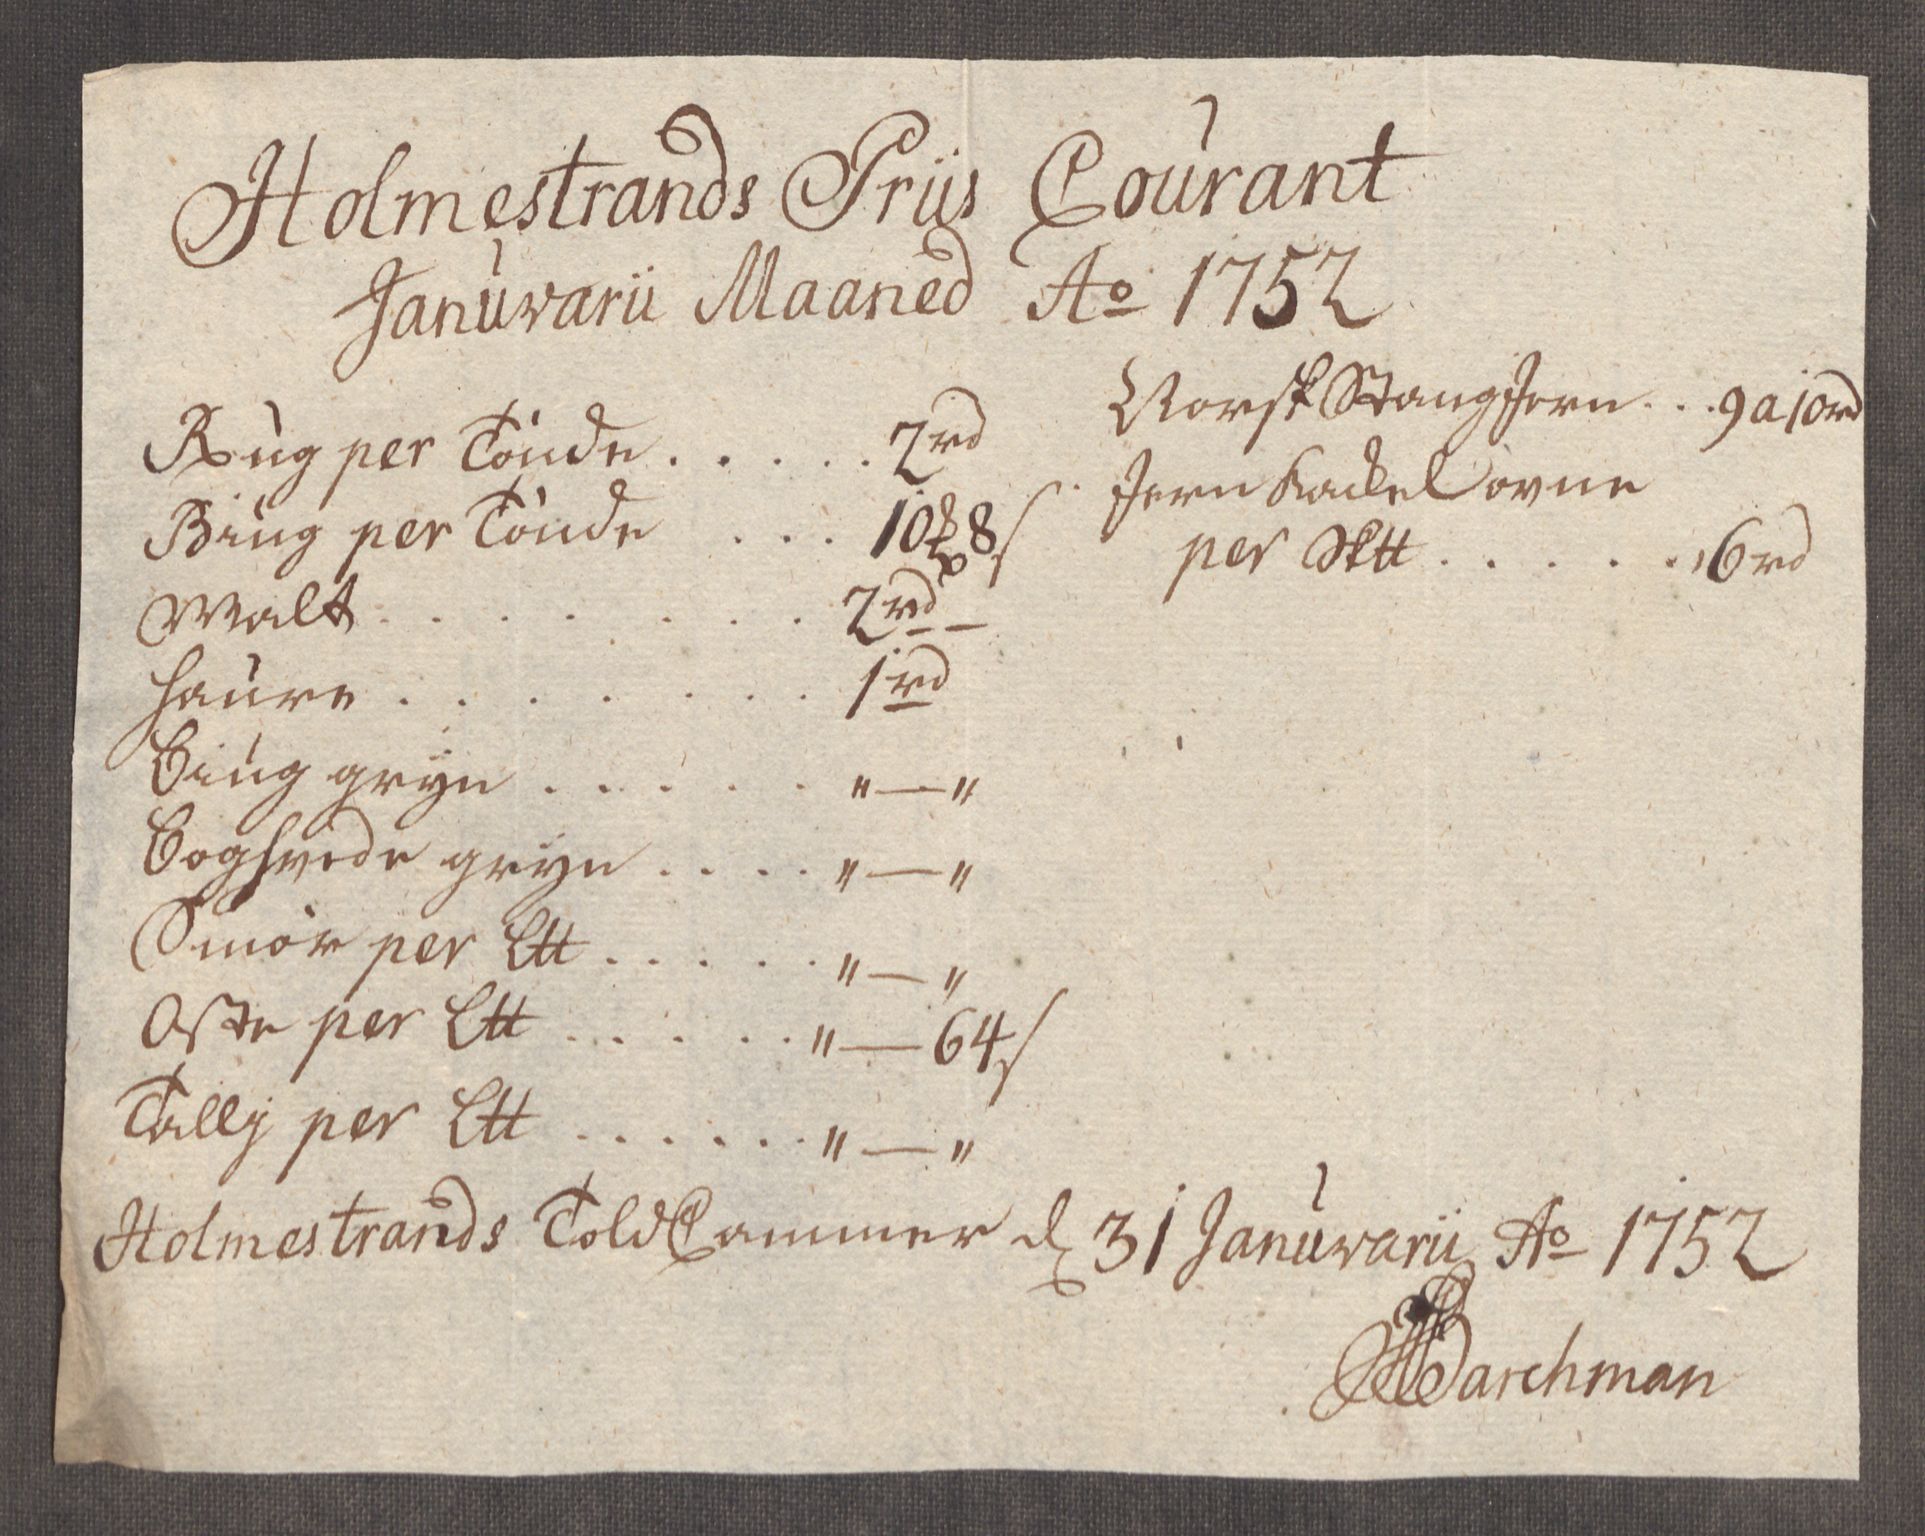 Holmestrands Priis Courant
Januvarii Maaned Ao 1752
Rug per Tönde . . . . . 2rd
Biug per Tönde . . . 10 8s
Malt . . . . . . . 2rd —
Haure . . . . . . . 1rd
Biug gryn . . . . . "—"
Boghvede gryn . . . . "—"
Smör per Ltt . . . . . "—"
Oste per Ltt . . . . . "—64s
Tallig per Ltt . . . . . . "—"
Norsk Stang Jern . . . 9 a 10rd
Jern Kackel ovne
per Sktt . . . . . 6rd
Holmestrands Told Cammer d 31 Januvarii Ao 1752
Barchman